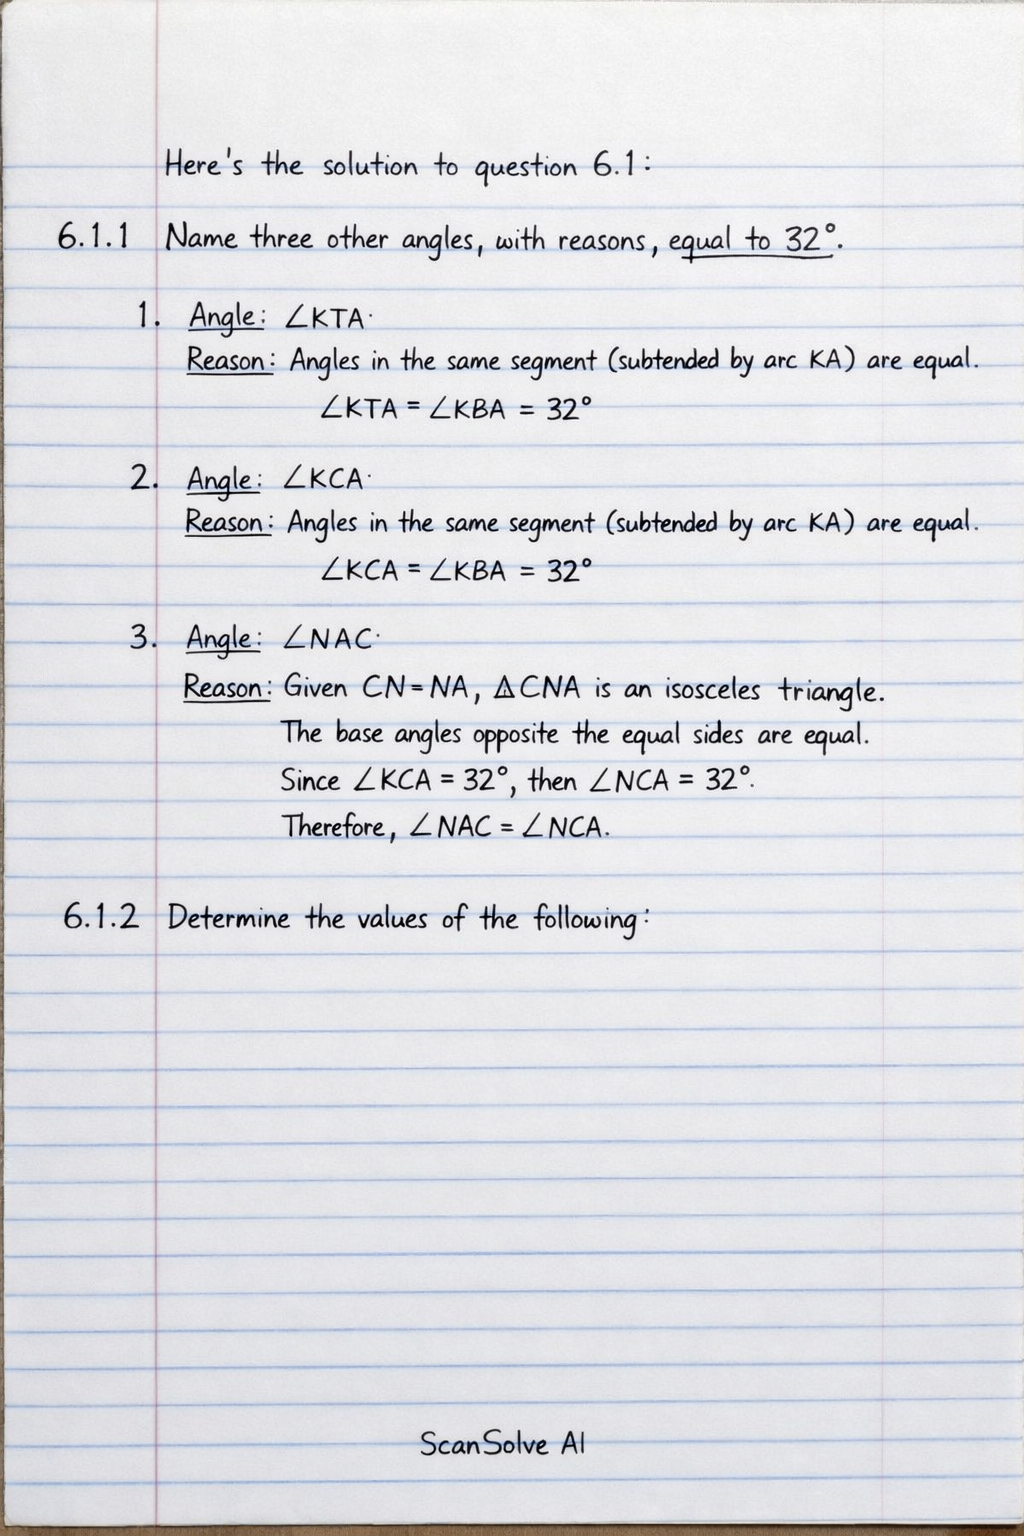 Here's the solution to question 6.1:
6.1.1 Name three other angles, with reasons, equal to 32°.
1. Angle: ∠KTA.
Reason: Angles in the same segment (subtended by arc KA) are equal.
∠KTA = ∠KBA = 32°
2. Angle: ∠KCA.
Reason: Angles in the same segment (subtended by arc KA) are equal.
∠KCA = ∠KBA = 32°
3. Angle: ∠NAC.
Reason: Given CN = NA, ΔCNA is an isosceles triangle.
The base angles opposite the equal sides are equal.
Since ∠KCA = 32°, then ∠NCA = 32°.
Therefore, ∠NAC = ∠NCA.
6.1.2 Determine the values of the following:
ScanSolve AI